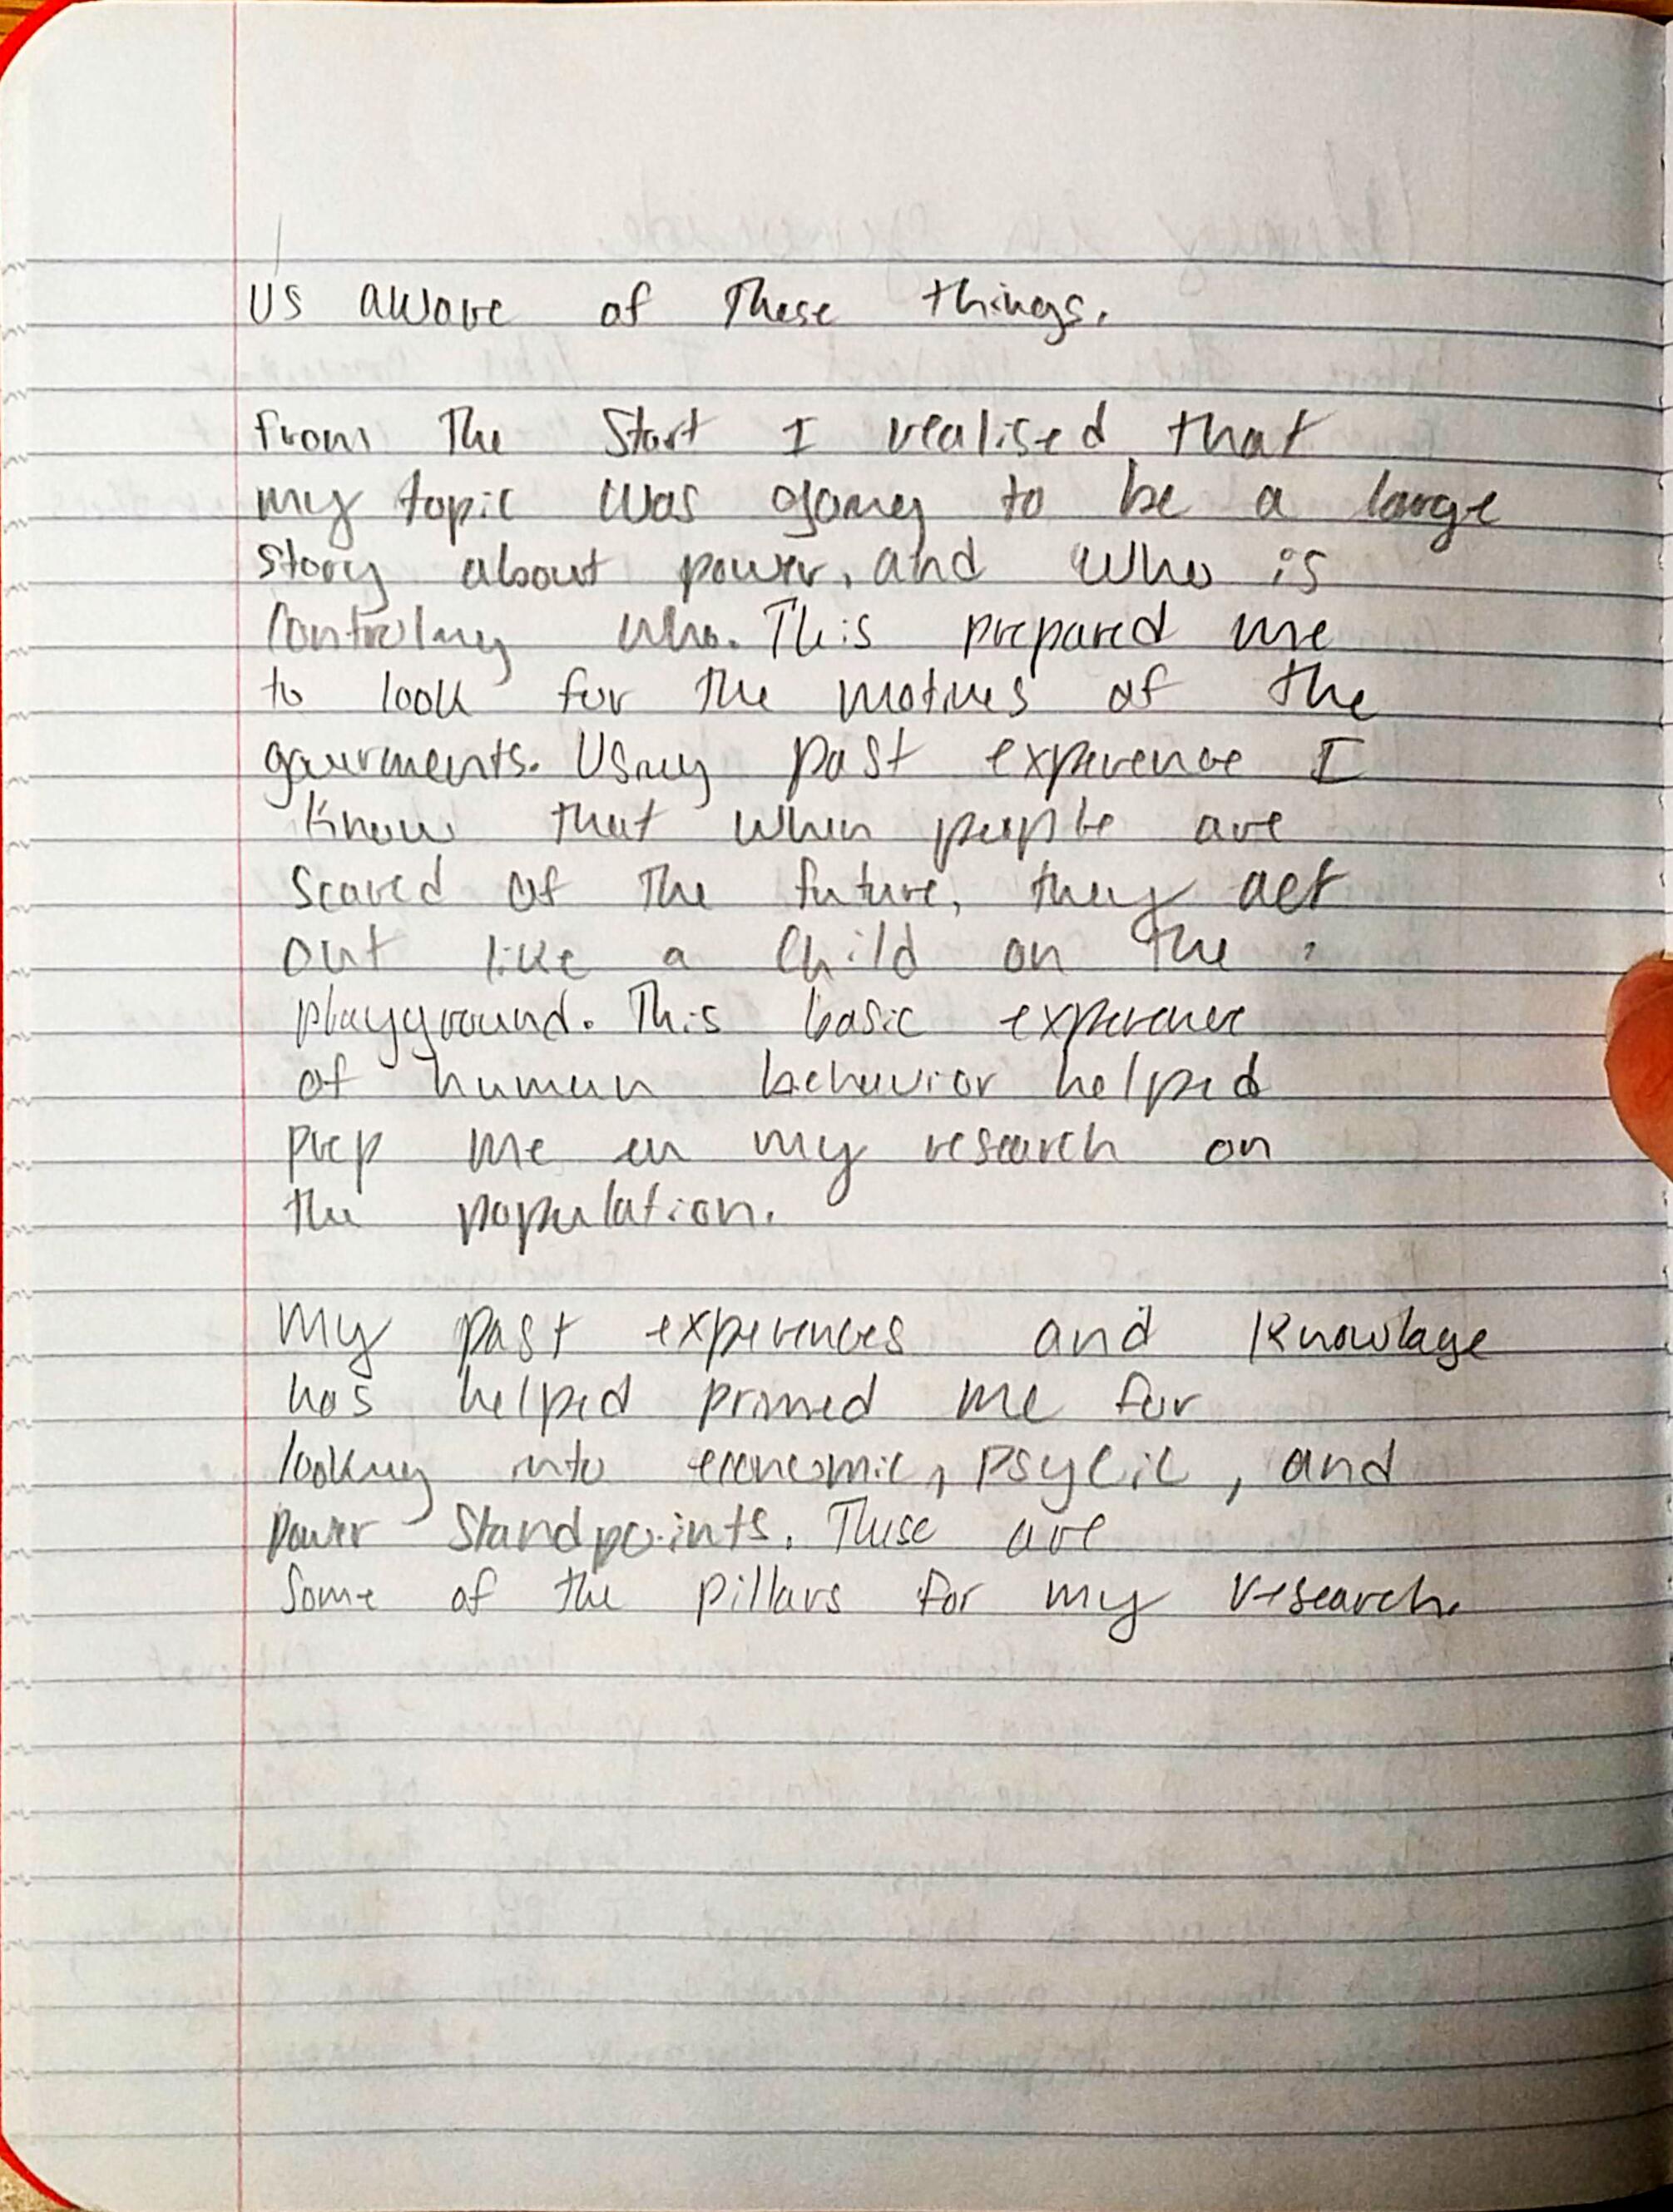 us aware of These things.
From The Start I realised that
my topic was going to be a large
story about power, and who is
controling who. This prepared me
to look for the motives of the
gaurments. Using past experence I
know that when people are
scared of the future, they act
out like a child on the
playground. This basic experence
of human behavior helped
prep me in my research on
the population.
My past experences and knowlage
has helped primed me for
looking into economic, psycic, and
power standpoints. These are
some of the pillars for my research.